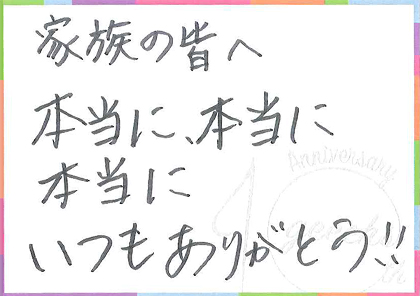 家族の皆へ
本当に、本当に
本当に
いつもありがとう!!
Anniversary